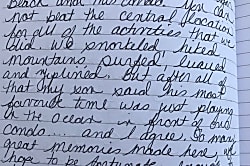 beach and this condo. You can
not beat the central location
for all of the activities that we
did. We snorkeled, hiked
mountains, surfed, luaued
and ziplined. But after all of
that my son said his most
favourite time was just playing
in the ocean in front of the
condo.... and I agree. So many
great memories made here, we
hope to be fortunate